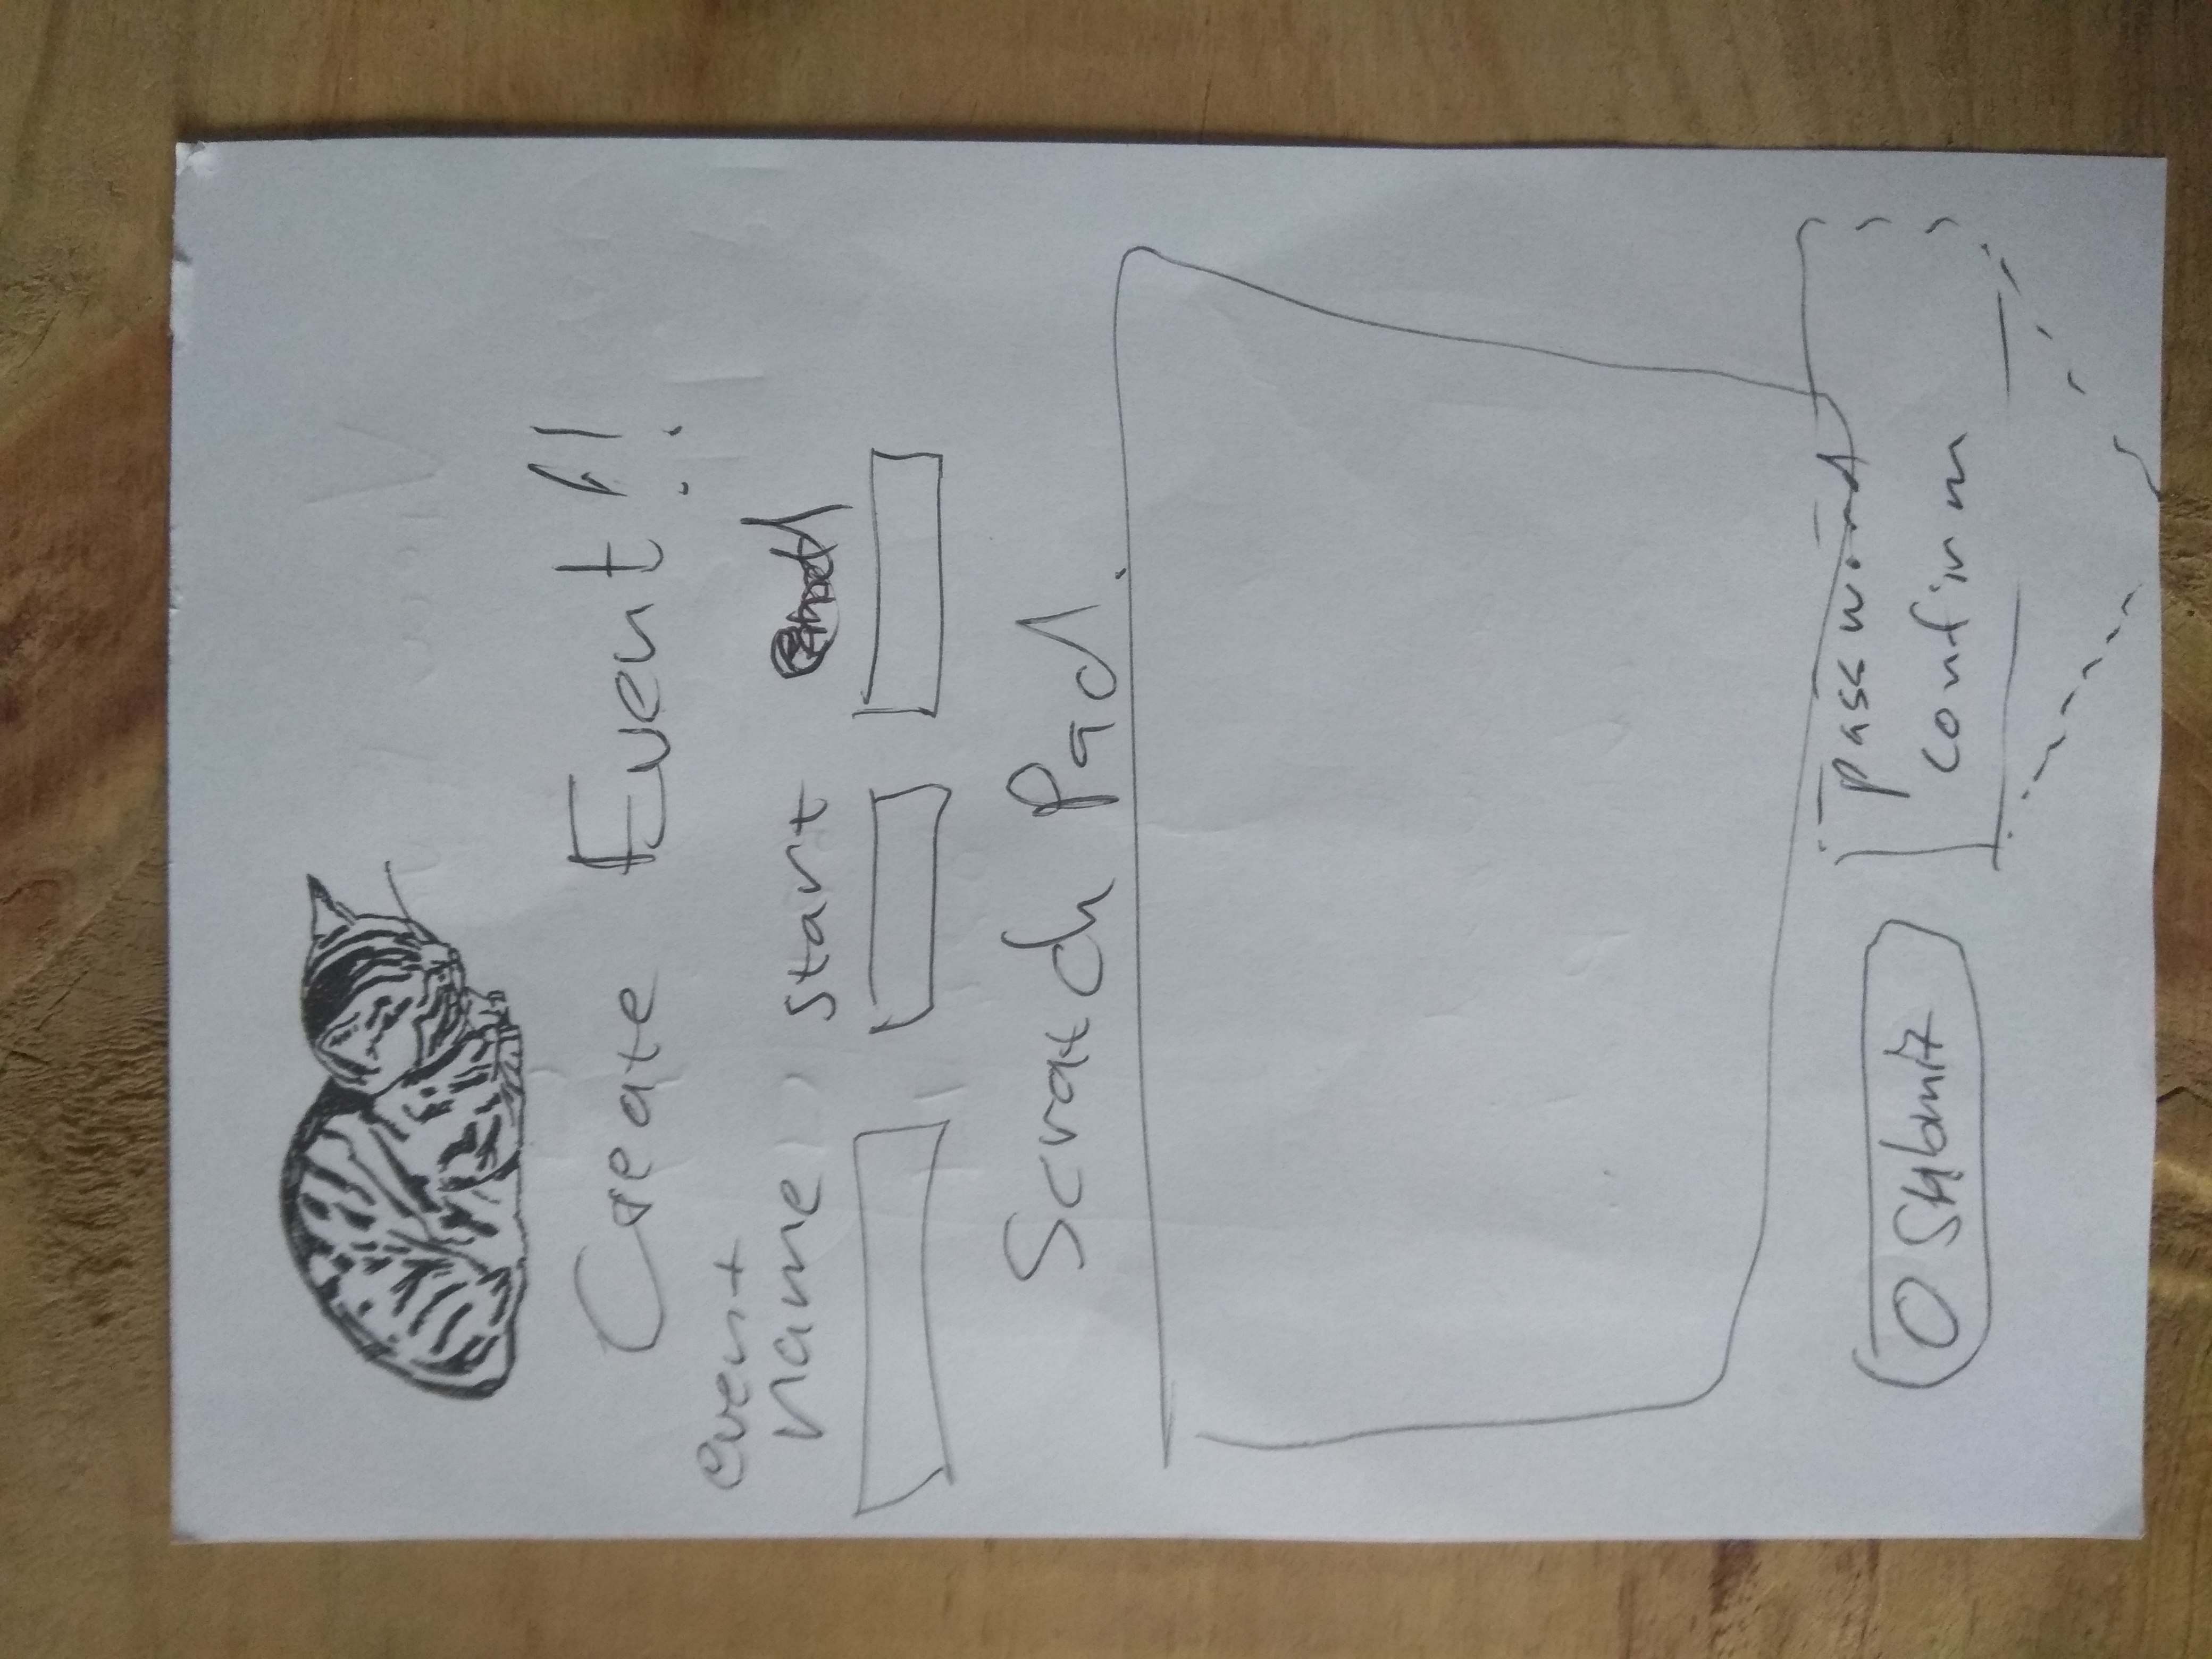 Create Event!!
event
name start end
Scratch Pad.
Submit
password
confirm